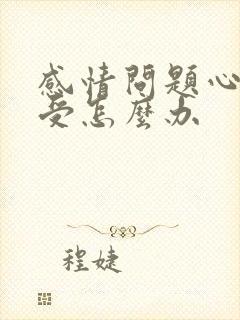 感情問題心
受怎麼办
程婕